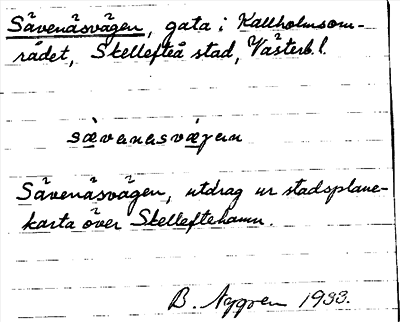 Sävenäsvägen, gata i Kallholmsom-
rådet, Skellefteå stad, Västerb. l.
sävenäsvägen
Sävenäsvägen, utdrag ur stadsplane-
karta över Skelleftehamn.
B. Nygren 1933.